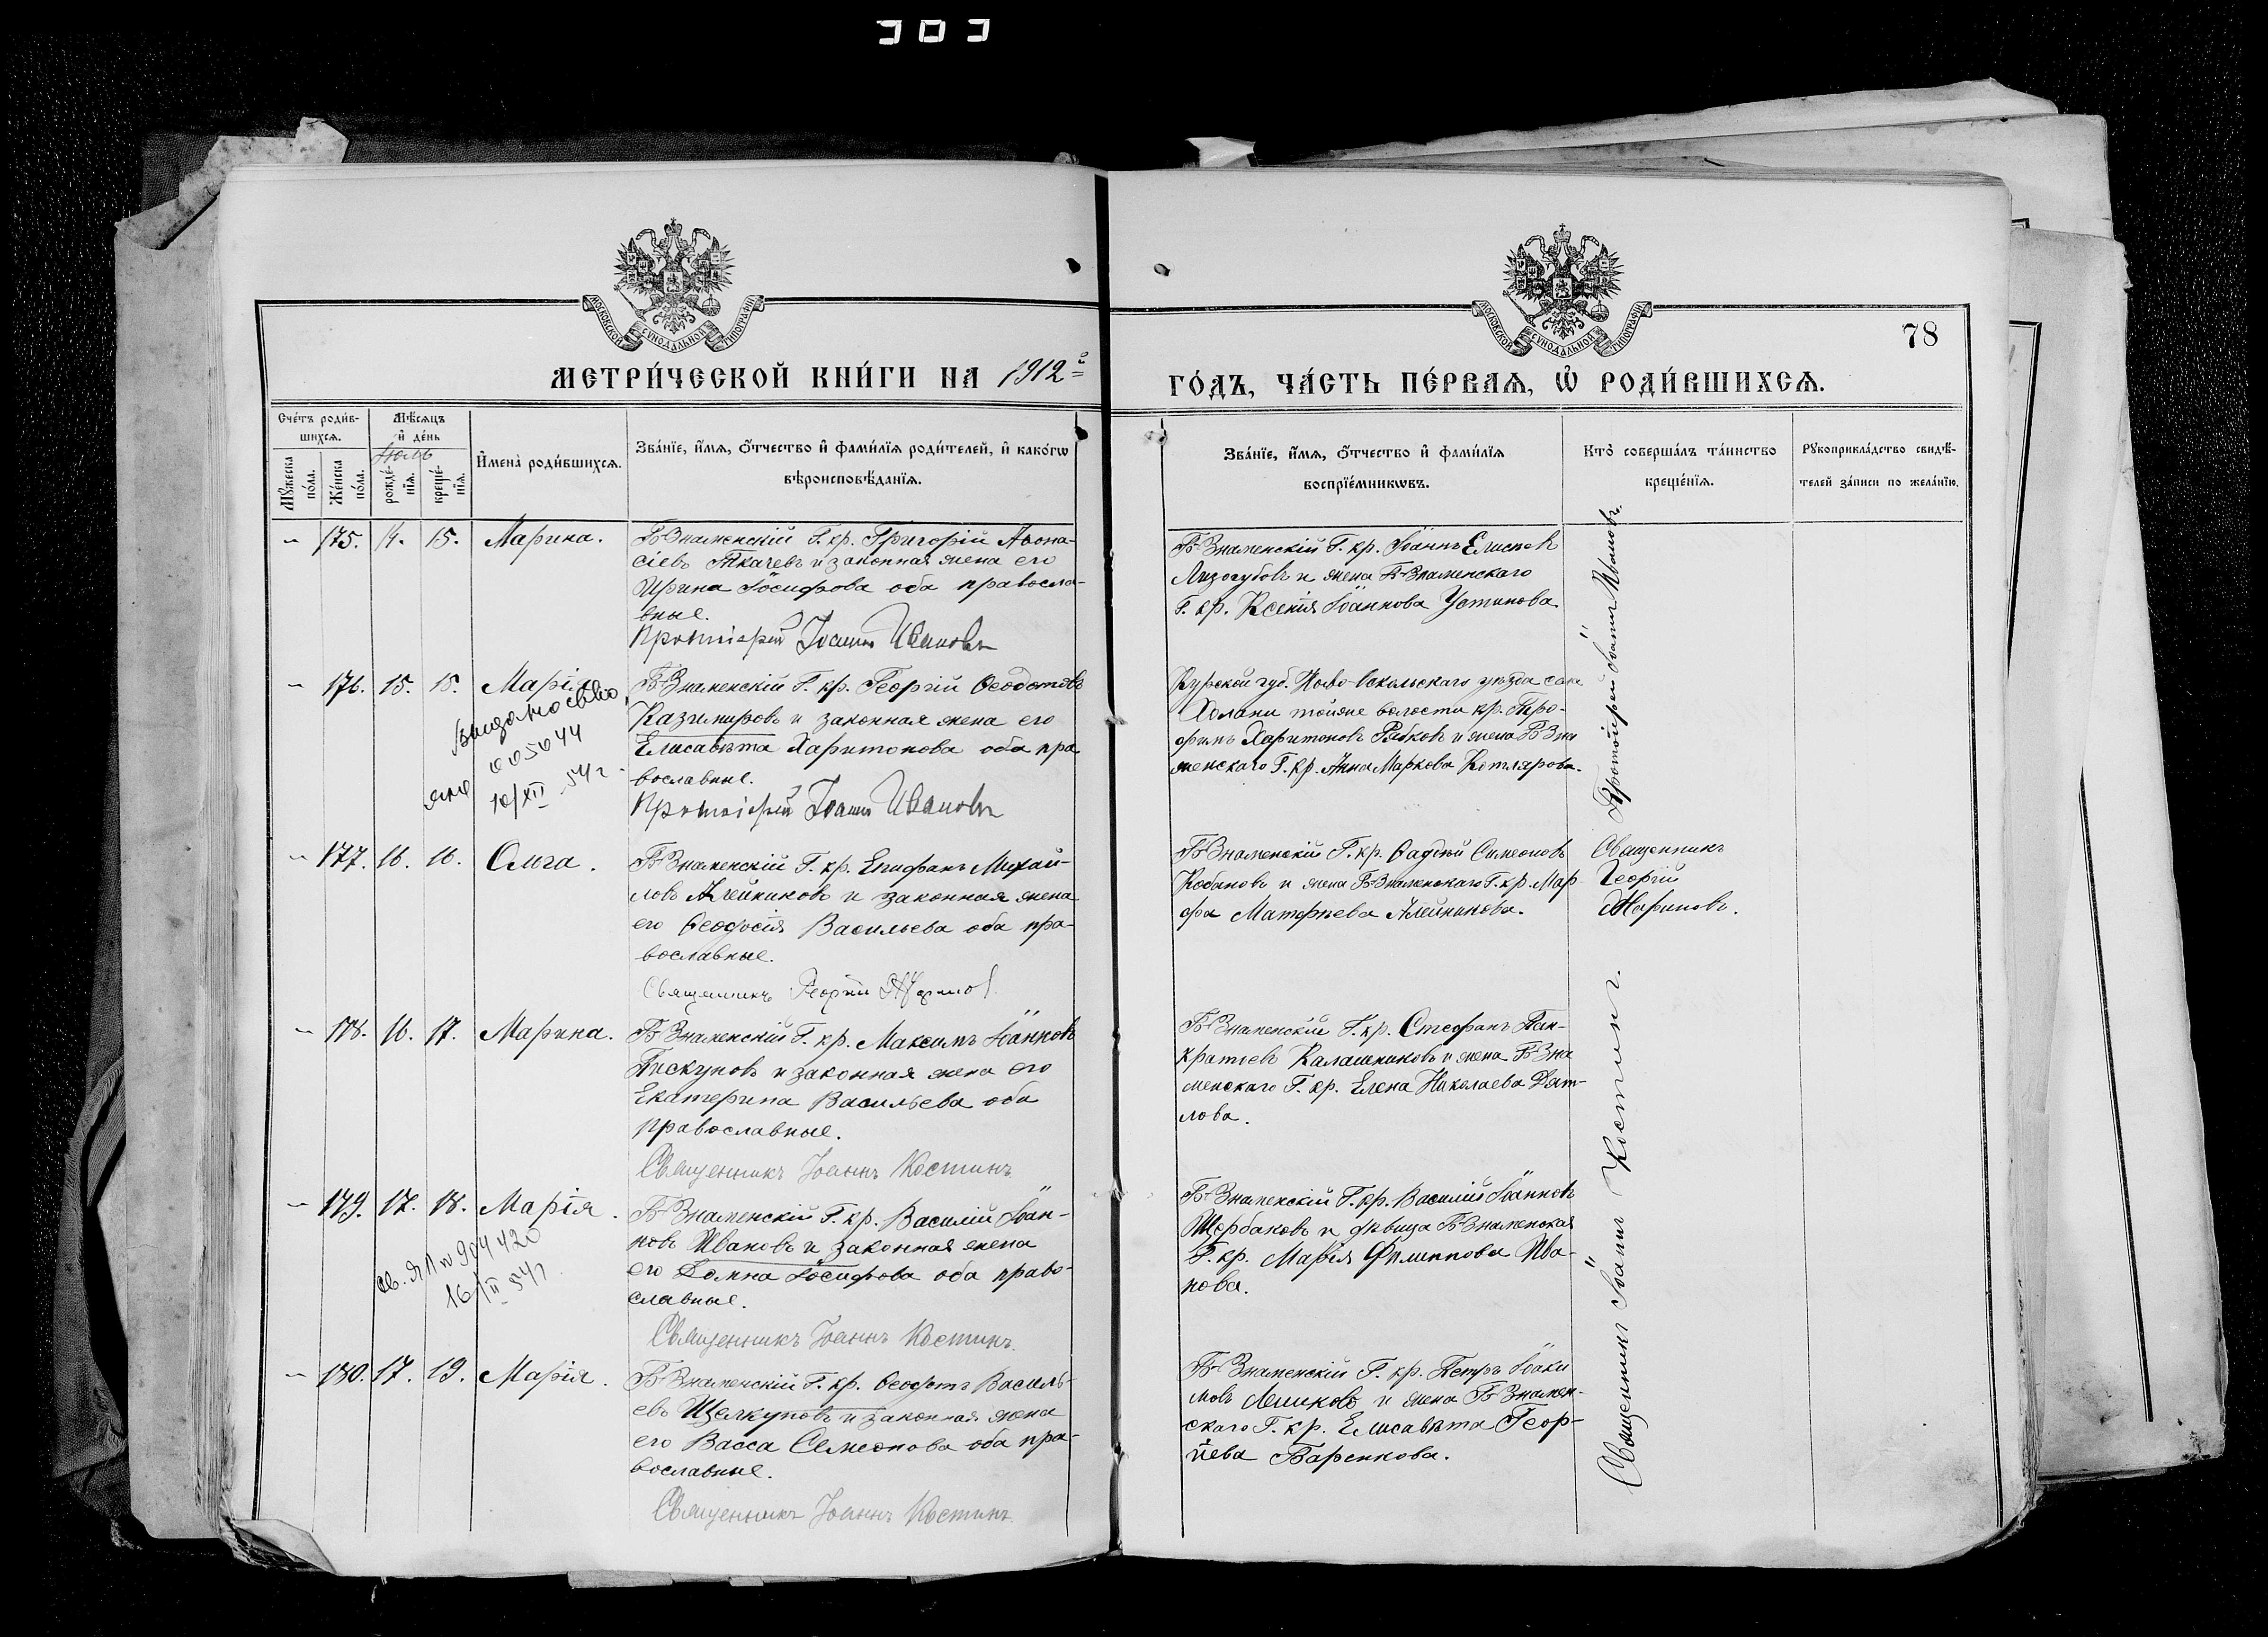 303
МОСКОВСКОЙ СѴНОДАЛЬНОЙ ТИПОГРАФІИ
МОСКОВСКОЙ СѴНОДАЛЬНОЙ ТИПОГРАФІИ
78
МЕТРИ́ЧЕСКОЙ КНИ́ГИ НА 1912 й
ГО́ДЪ, ЧА́СТЬ ПЕ́РВАѦ, Ѡ҆ РОДИ́ВШИХСѦ.
Сче́тъ роди́в-
шихсѧ.
Мѹ́жеска по́ла.
Же́нска по́ла.
Мѣ́сѧцъ
и҆ де́нь
Іюль
рожде́нїѧ.
креще́нїѧ.
И҆мена̀ роди́вшихсѧ.
Зва́нїе, и҆́мѧ, ѻ҆́тчество и҆ фами́лїѧ роди́телей, и҆ како́гѡ
вѣроисповѣ́данїѧ.
Зва́нїе, и҆́мѧ, ѻ҆́тчество и҆ фами́лїѧ
воспрїе́мникѡвъ.
Кто̀ соверша́лъ та́инство
креще́нїѧ.
Рѹкоприкла́дство свидѣ́-
телей за́писи по жела́нїю.
– 175. 14. 15. Марина.
Б-Знаменскій Г. кр. Григорій Аѳона-
сіевъ Ткачевъ и законная жена его
Ирина Іосифова оба правосла-
вные.
Протоіерей Іоаннъ Ивановъ
Б-Знаменскій Г. кр. Іоаннъ Елисеевъ
Лизогубовъ и жена Б-Знаменскаго
Г. кр. Ксенія Іоаннова Устинова
Протоіерей Іоаннъ Ивановъ.
– 176. 15. 15. Марія
Выдано св-во
005044
10/XII 54 г.
Б-Знаменскій Г. кр. Георгій Ѳеодотовъ
Казимировъ и законная жена его
Елисавѣта Харитонова оба пра
вославные.
Протоіерей Іоаннъ Ивановъ
Курской губ. Ново-Оскольскаго уѣзда села
Холани тойже волости кр. Тро-
фимъ Харитоновъ Рябковъ и жена Б-Зна
менскаго Г. кр. Анна Маркова Котлярова.
– 177. 16. 16. Ольга.
Б-Знаменскій Г. кр. Епифанъ Михай-
ловъ Алейниковъ и законная жена
его Ѳеодосія Васильева оба пра-
вославные.
Священникъ Георгій
Б-Знаменскій Г. кр. Ѳаддей Симеоновъ
Кобановъ и жена Б-Знаменскаго Г. кр. Мар
фа Матфѣева Алейникова.
Священникъ
Георгій
– 178. 16. 17. Марина.
Б-Знаменскій Г. кр. Максимъ Іоанновъ
Пискуновъ и законная жена его
Екатерина Васильева оба
православные.
Священникъ Іоаннъ Костинъ
Б-Знаменскій Г. кр. Стефанъ Пан-
кратьевъ Калашниковъ и жена Б-Зна
менскаго Г. кр. Елена Николаева Дят-
лова.
Священникъ Іоаннъ Костинъ.
– 179. 17. 18. Марія.
св. ЯЛ № 904420
16/II 54 г
Б-Знаменскій Г. кр. Василій Іоан-
новъ Ивановъ и законная жена
его Домна Іосифова оба право-
славные.
Священникъ Іоаннъ Костинъ.
Б-Знаменскій Г. кр. Василій Іоанновъ
Щербаковъ и дѣвица Б-Знаменская
Г. кр. Марія Филиппова Ива-
нова.
– 180. 17. 19. Марія.
Б-Знаменскій Г. кр. Ѳеодотъ Василь-
евъ Щелкуновъ и законная жена
его Васса Семеонова оба пра-
вославные.
Священникъ Іоаннъ Костинъ.
Б-Знаменскій Г. кр. Петръ Іоаки
мовъ и жена Б-Знамен-
скаго Г. кр. Елисавѣта Геор-
гіева Баренкова.